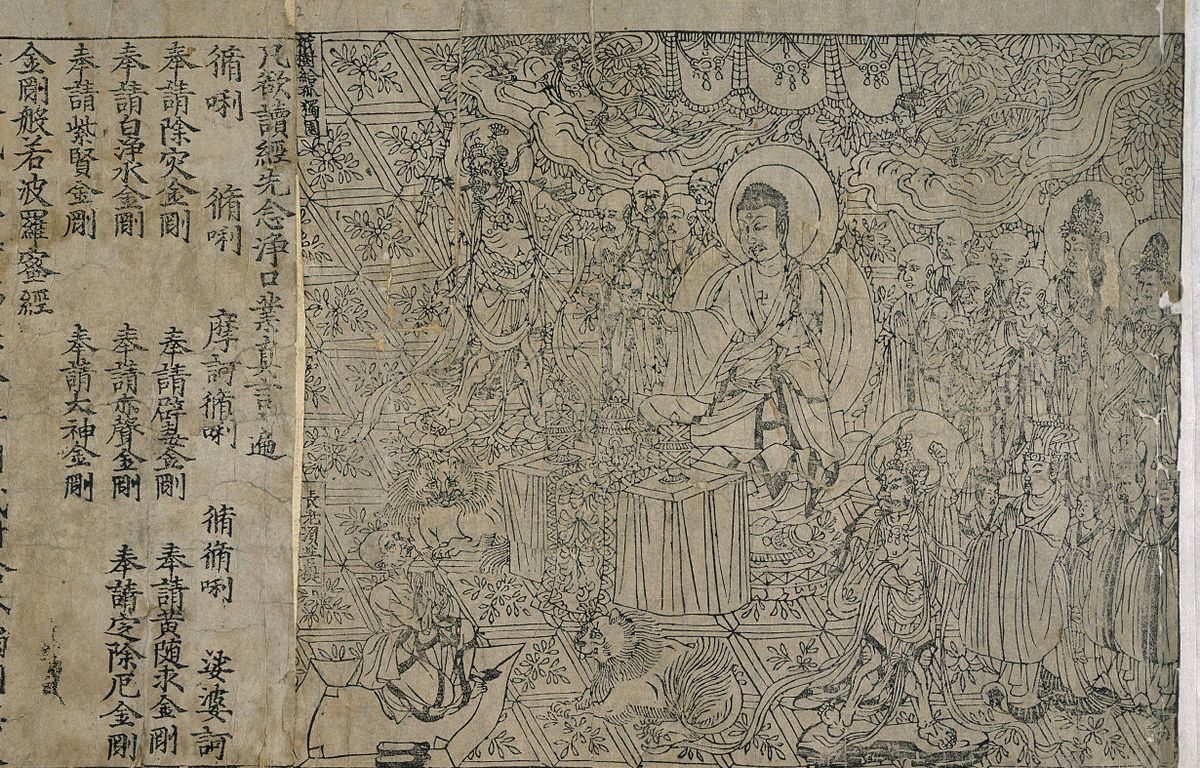 祇樹給孤獨園
長老須菩提
凡欲讀經先念淨口業真言遍
脩唎 脩唎 摩訶脩唎 脩脩唎 娑婆訶
奉請除灾金剛 奉請辟毒金剛 奉請黄随求金剛
奉請白淨水金剛 奉請赤聲金剛 奉請定除厄金剛
奉請紫賢金剛 奉請大神金剛
金剛般若波羅蜜經